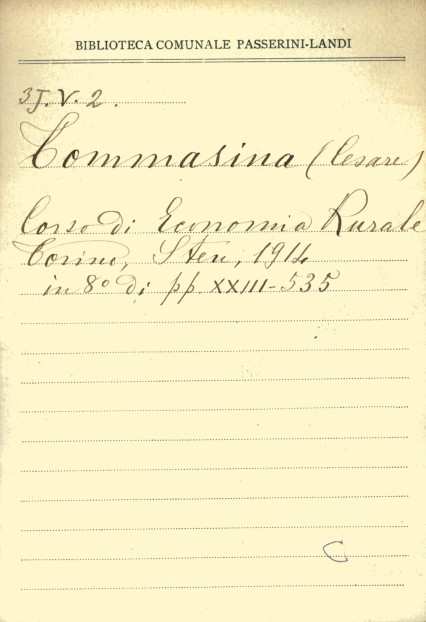 BIBLIOTECA COMUNALE PASSERINI-LANDI
3J.V.2.
Tommasina (Cesare)
Corso di Economia Rurale
Torino, Sten, 1914
in 8º di pp. XXIII-535
C